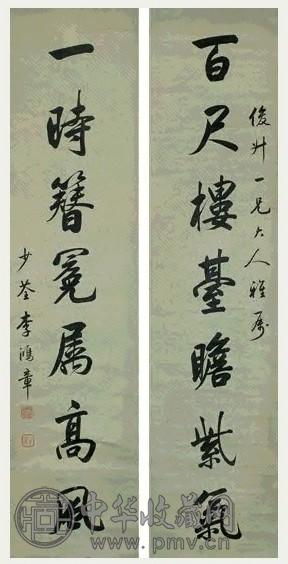 俊卅一兄大人雅属
百尺樓臺瞻紫氣
一時簪冕属高風
少荃李鴻章
中华收藏网
www.pmv.cn